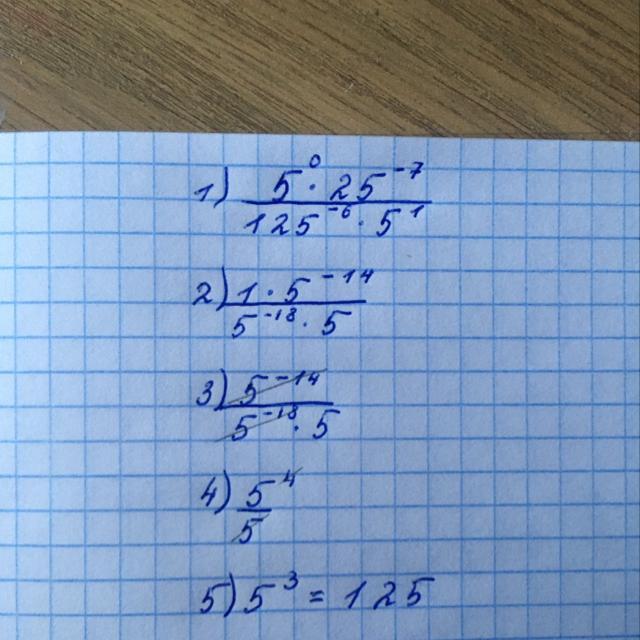 1) 5⁰ · 25⁻⁷ / 125⁻⁶ · 5¹
2) 1 · 5⁻¹⁴ / 5⁻¹⁸ · 5
3) 5⁻¹⁴ / 5⁻¹⁸ · 5
4) 5⁴ / 5
5) 5³ = 125